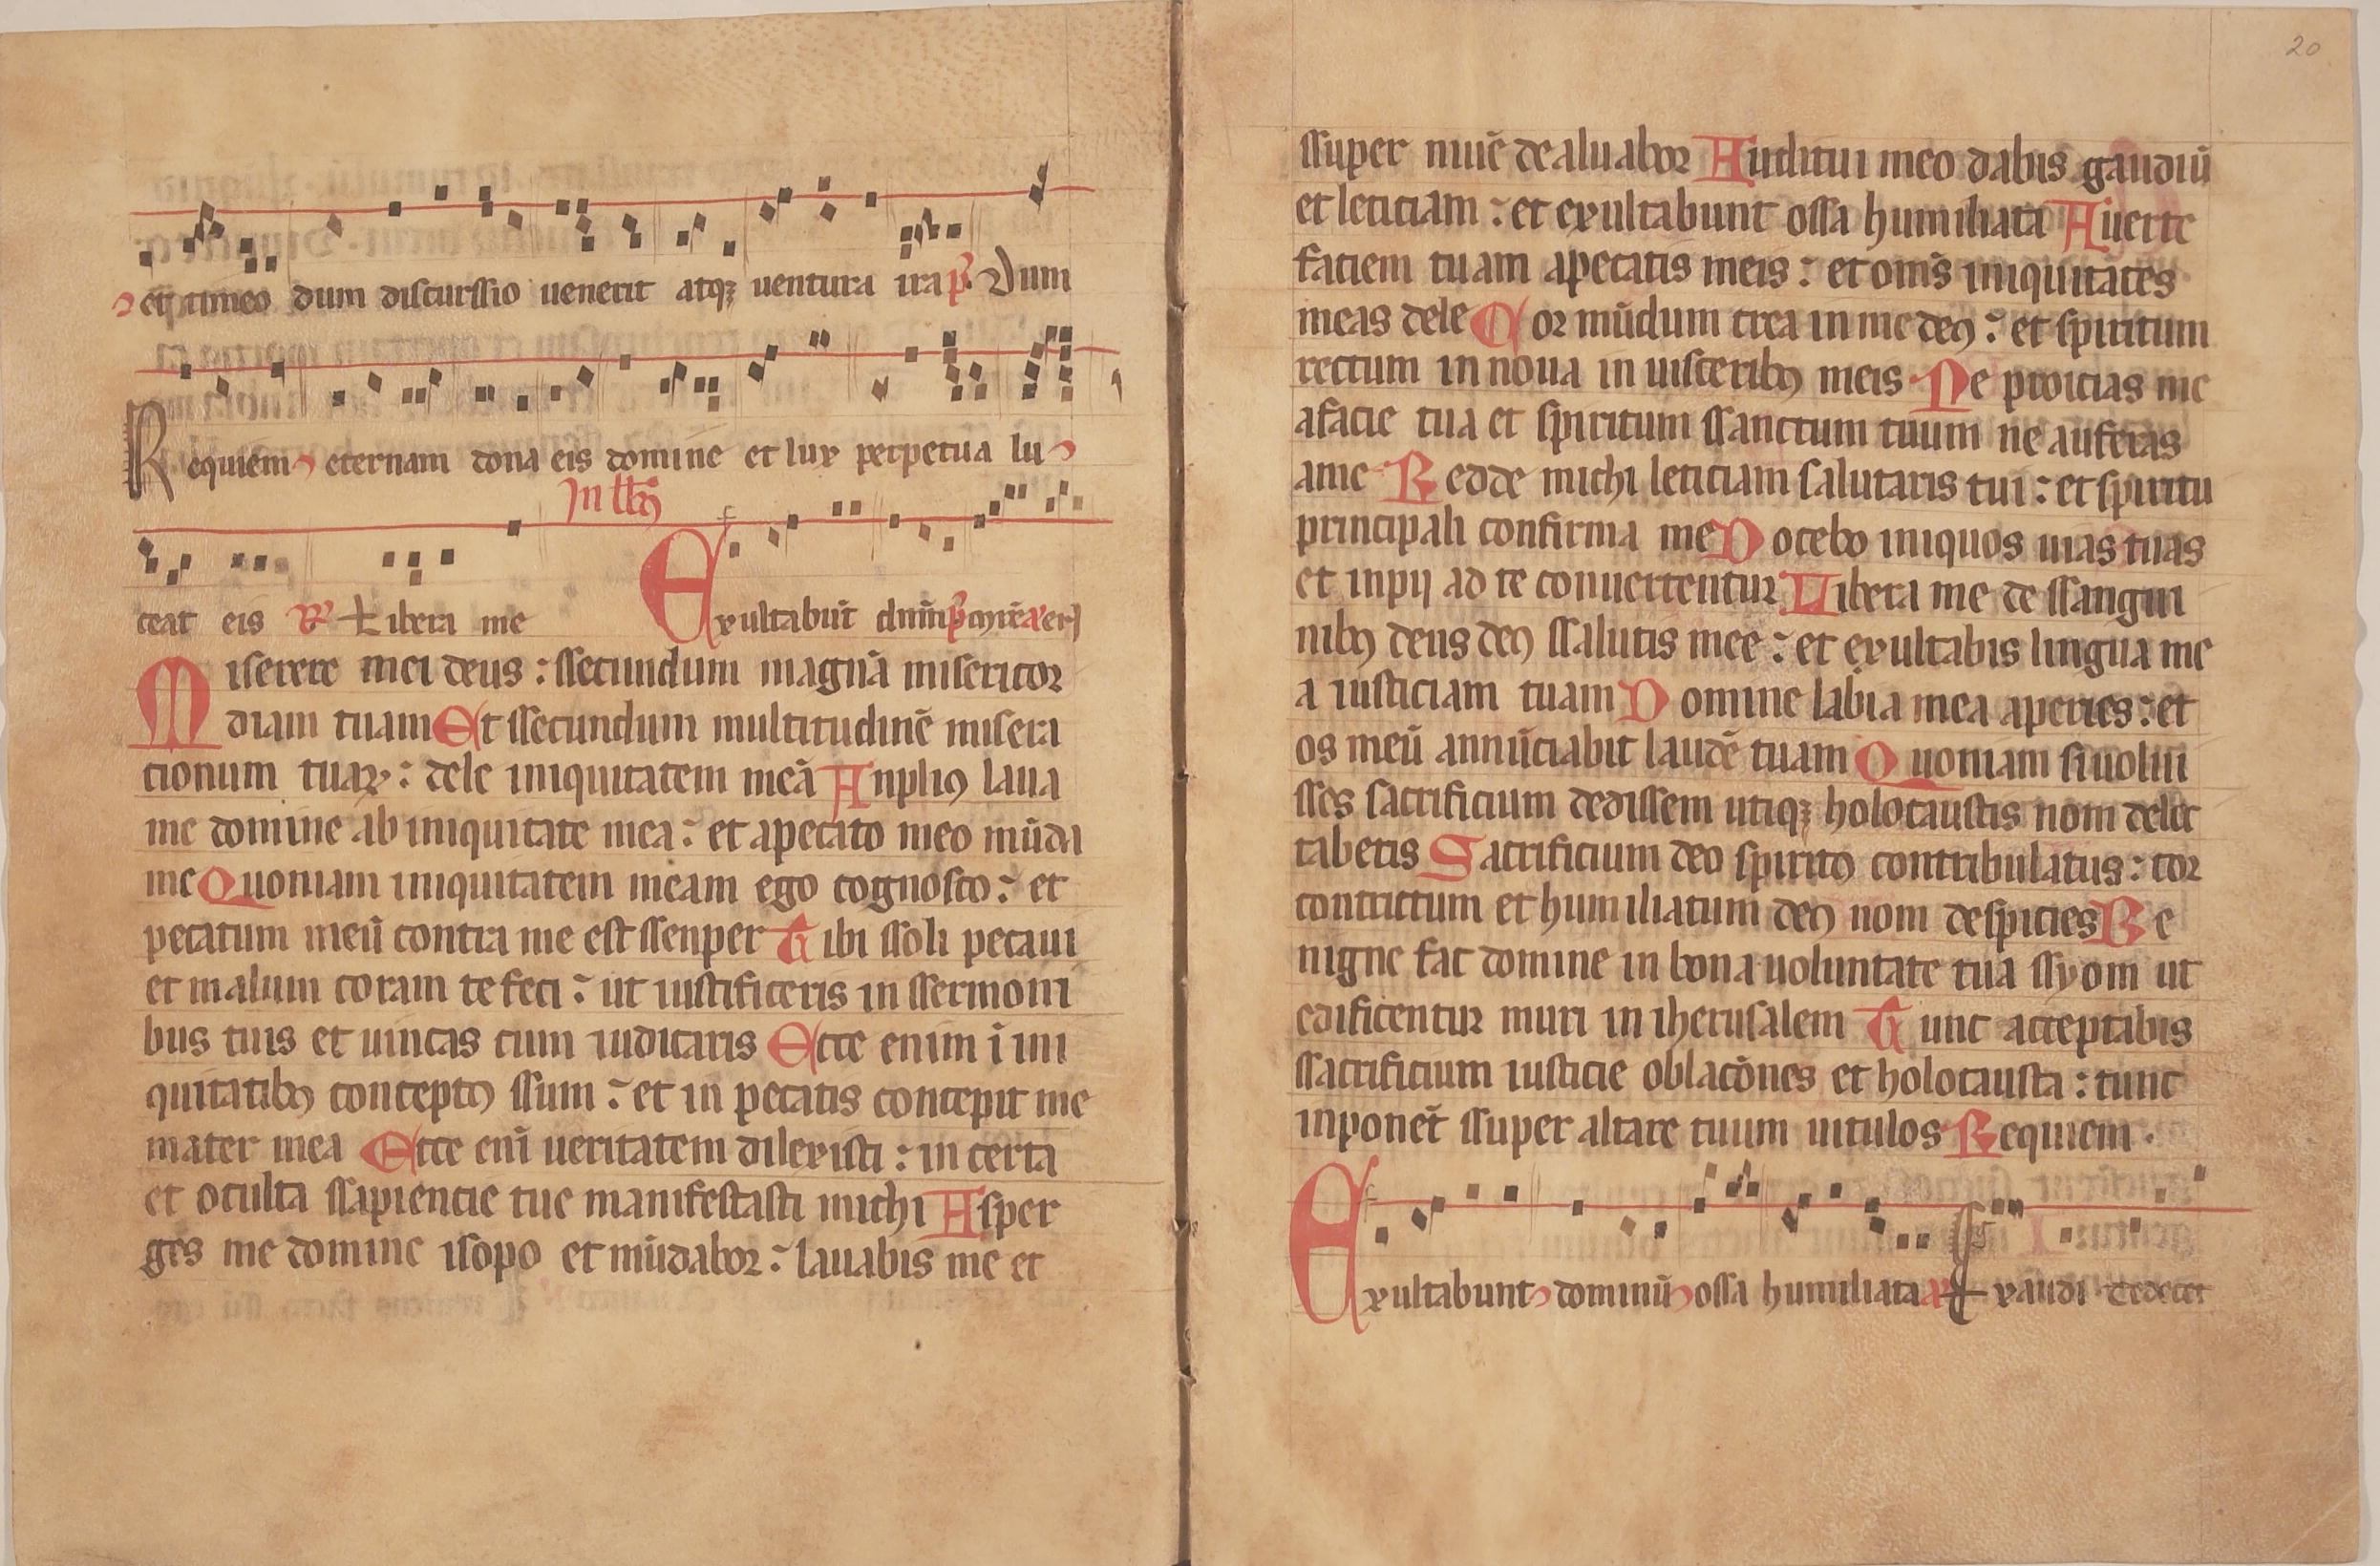 et timeo dum discurssio uenerit atqꝫ uentura ira p̄. Dum
Requiem eternam dona eis domine et lux perpetua lu
In ll̄b
ceat eis ℟ Libera me Exultabūt dnm̄
Miserere mei deus : ssecundum magnā misericor
diam tuam Et ssecundum multitudinē misera
cionum tuaꝝ : dele iniquitatem meā Anpliꝰ laua
me domine ab iniquitate mea : et apecato meo mūda
me Quoniam iniquitatem meam ego cognosco : et
pecatum meū contra me est ssenper Tibi ssoli pecaui
et malum coram te feci : ut iustificeris in ssermoni
bus tuis et uincas cum iudicaris Ecce enim ī ini
quitatibꝰ conceptꝰ ssum : et in pecatis concepit me
mater mea Ecce enī ueritatem dilexisti : incerta
et oculta ssapiencie tue manifestasti michi Asper
ges me domine isopo et mūdabor : lauabis me et
20
ssuper niuē dealuabor Auditui meo dabis gaudiū
et leticiam : et exultabunt ossa humiliata Auerte
faciem tuam apecatis meis : et om̄s iniquitates
meas dele Cor mūdum crea in me deꝰ : et spiritum
rectum in noua in uisceribꝰ meis Ne proicias me
afacie tua et spiritum ssanctum tuum ne auferas
ame Redde michi leticiam salutaris tui : et spiritu
principali confirma me Docebo iniquos uias tuas
et inpij ad te conuertentur Libera me de ssangui
nibꝰ deus deꝰ ssalutis mee : et exultabis lingua me
a iusticiam tuam Domine labia mea aperies : et
os meū annūciabit laudē tuam Quoniam si uolui
sses sacrificium dedissem utiqꝫ holocaustis nom delec
taberis Sacrificium deo spiritꝰ contribulatus : cor
contrictum et humiliatum deꝰ nom despicies Be
nigne fac domine in bona uoluntate tua ssyom ut
edificentur muri in iherusalem Tunc acceptabis
ssacrificium iusticie oblacōnes et holocausta : tunc
inponēt ssuper altare tuum uitulos Requiem .
Exultabunt dominū ossa humiliata Exaudi te decet